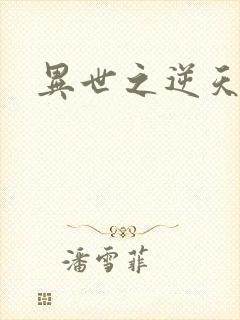 異世之逆天
潘雪菲